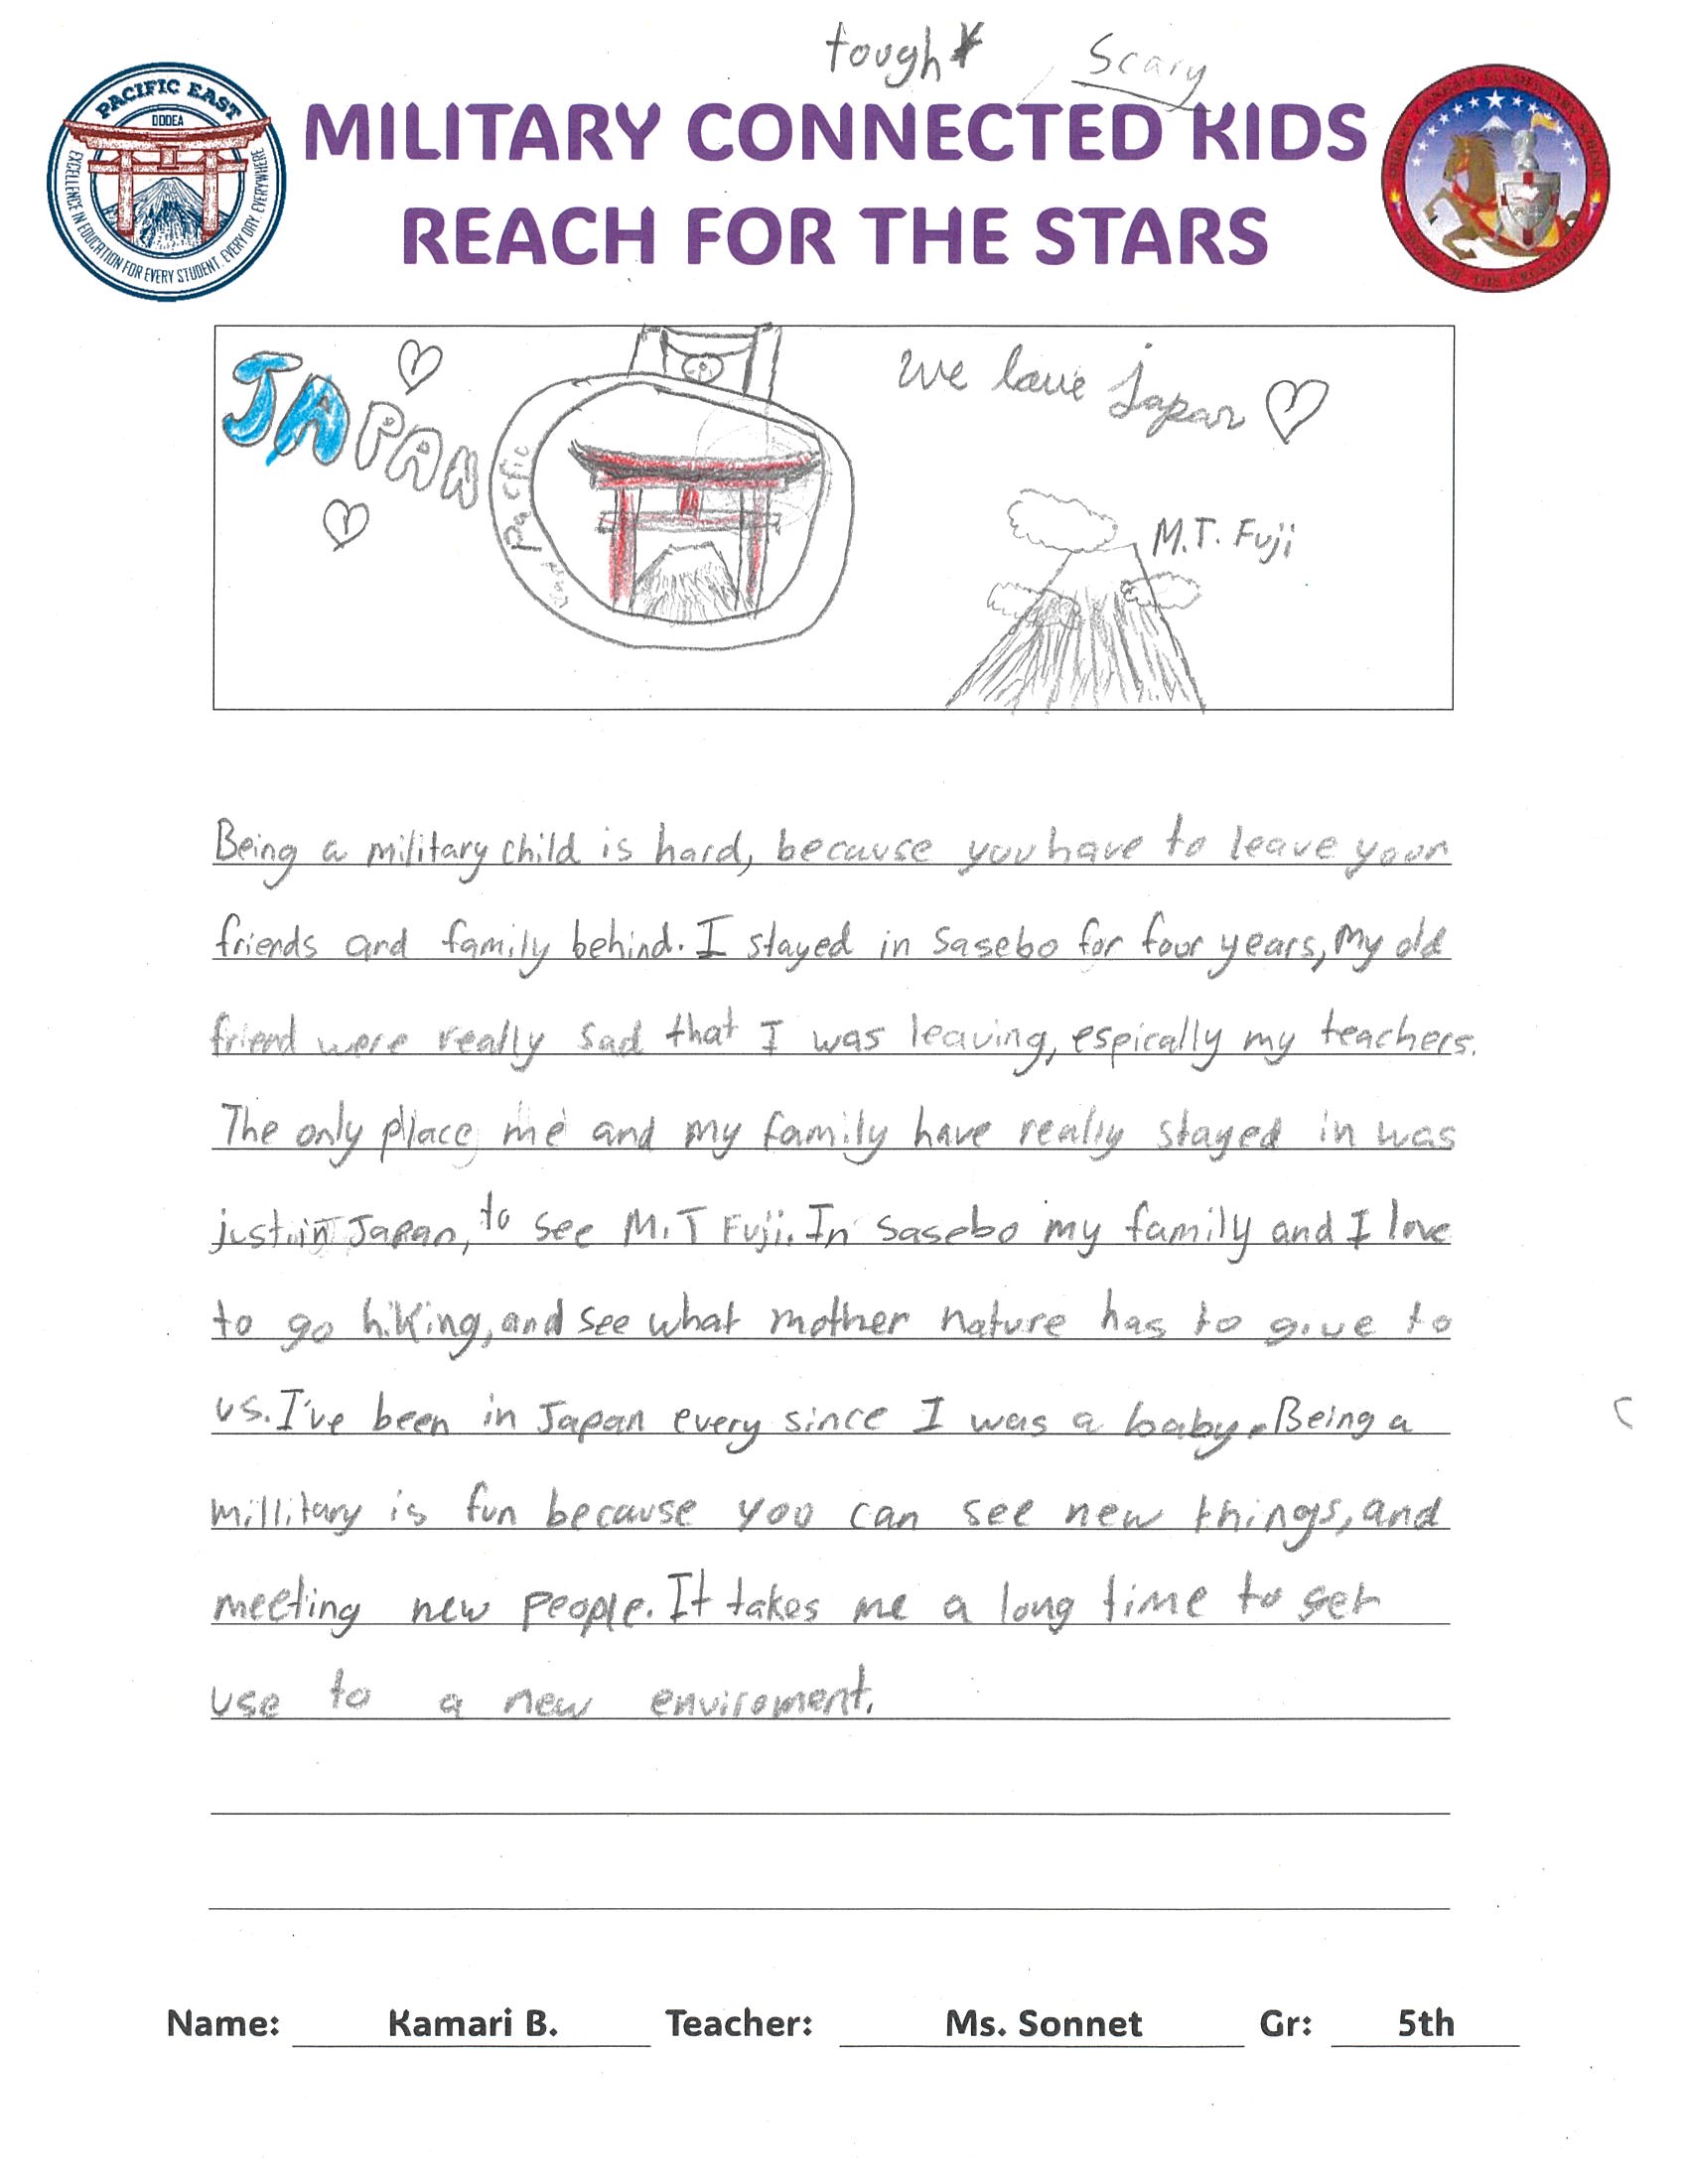 tough Scary
PACIFIC EAST
DODEA
EXCELLENCE IN EDUCATION FOR EVERY STUDENT, EVERY DAY, EVERYWHERE
MILITARY CONNECTED KIDS
REACH FOR THE STARS
JAPAN
Pacfic
We love Japan
M.T. Fuji
Being a military child is hard, because you have to leave your
friends and family behind. I stayed in Sasebo for four years, My old
friend were really sad that I was leaving, espically my teachers.
The only place me and my family have really stayed in was
just in Japan, to see M.T Fuji. In Sasebo my family and I love
to go hiking, and see what mother nature has to give to
us. I've been in Japan every since I was a baby. Being a
millitary is fun because you can see new things, and
meeting new people. It takes me a long time to get
use to a new enviroment.
Name: Kamari B. Teacher: Ms. Sonnet Gr: 5th